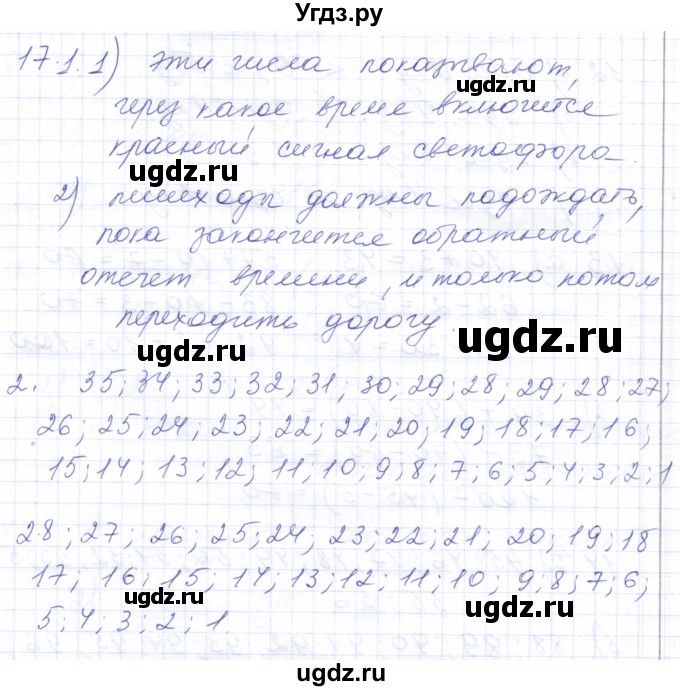 Угдз.ру
17.1.1) Эти числа показывают,
через какое время включится
красный сигнал светофора.
ugdz.ru ugdz.ru
2) пешеходы должны подождать,
пока закончится обратный
отсчет времени, и только потом
переходить дорогу.
ugdz.ru
2. 35; 34; 33; 32; 31; 30, 29; 28; 29; 28; 27;
26; 25; 24; 23; 22; 21; 20; 19; 18; 17; 16;
15; 14; 13; 12; 11; 10; 9; 8; 7; 6; 5; 4; 3; 2; 1
ugdz.ru
28; 27; 26; 25; 24; 23; 22; 21; 20; 19; 18
17; 16; 15; 14; 13; 12; 11; 10; 9; 8; 7; 6;
ugdz.ru ugdz.ru
5; 4; 3; 2; 1
ugdz.ru